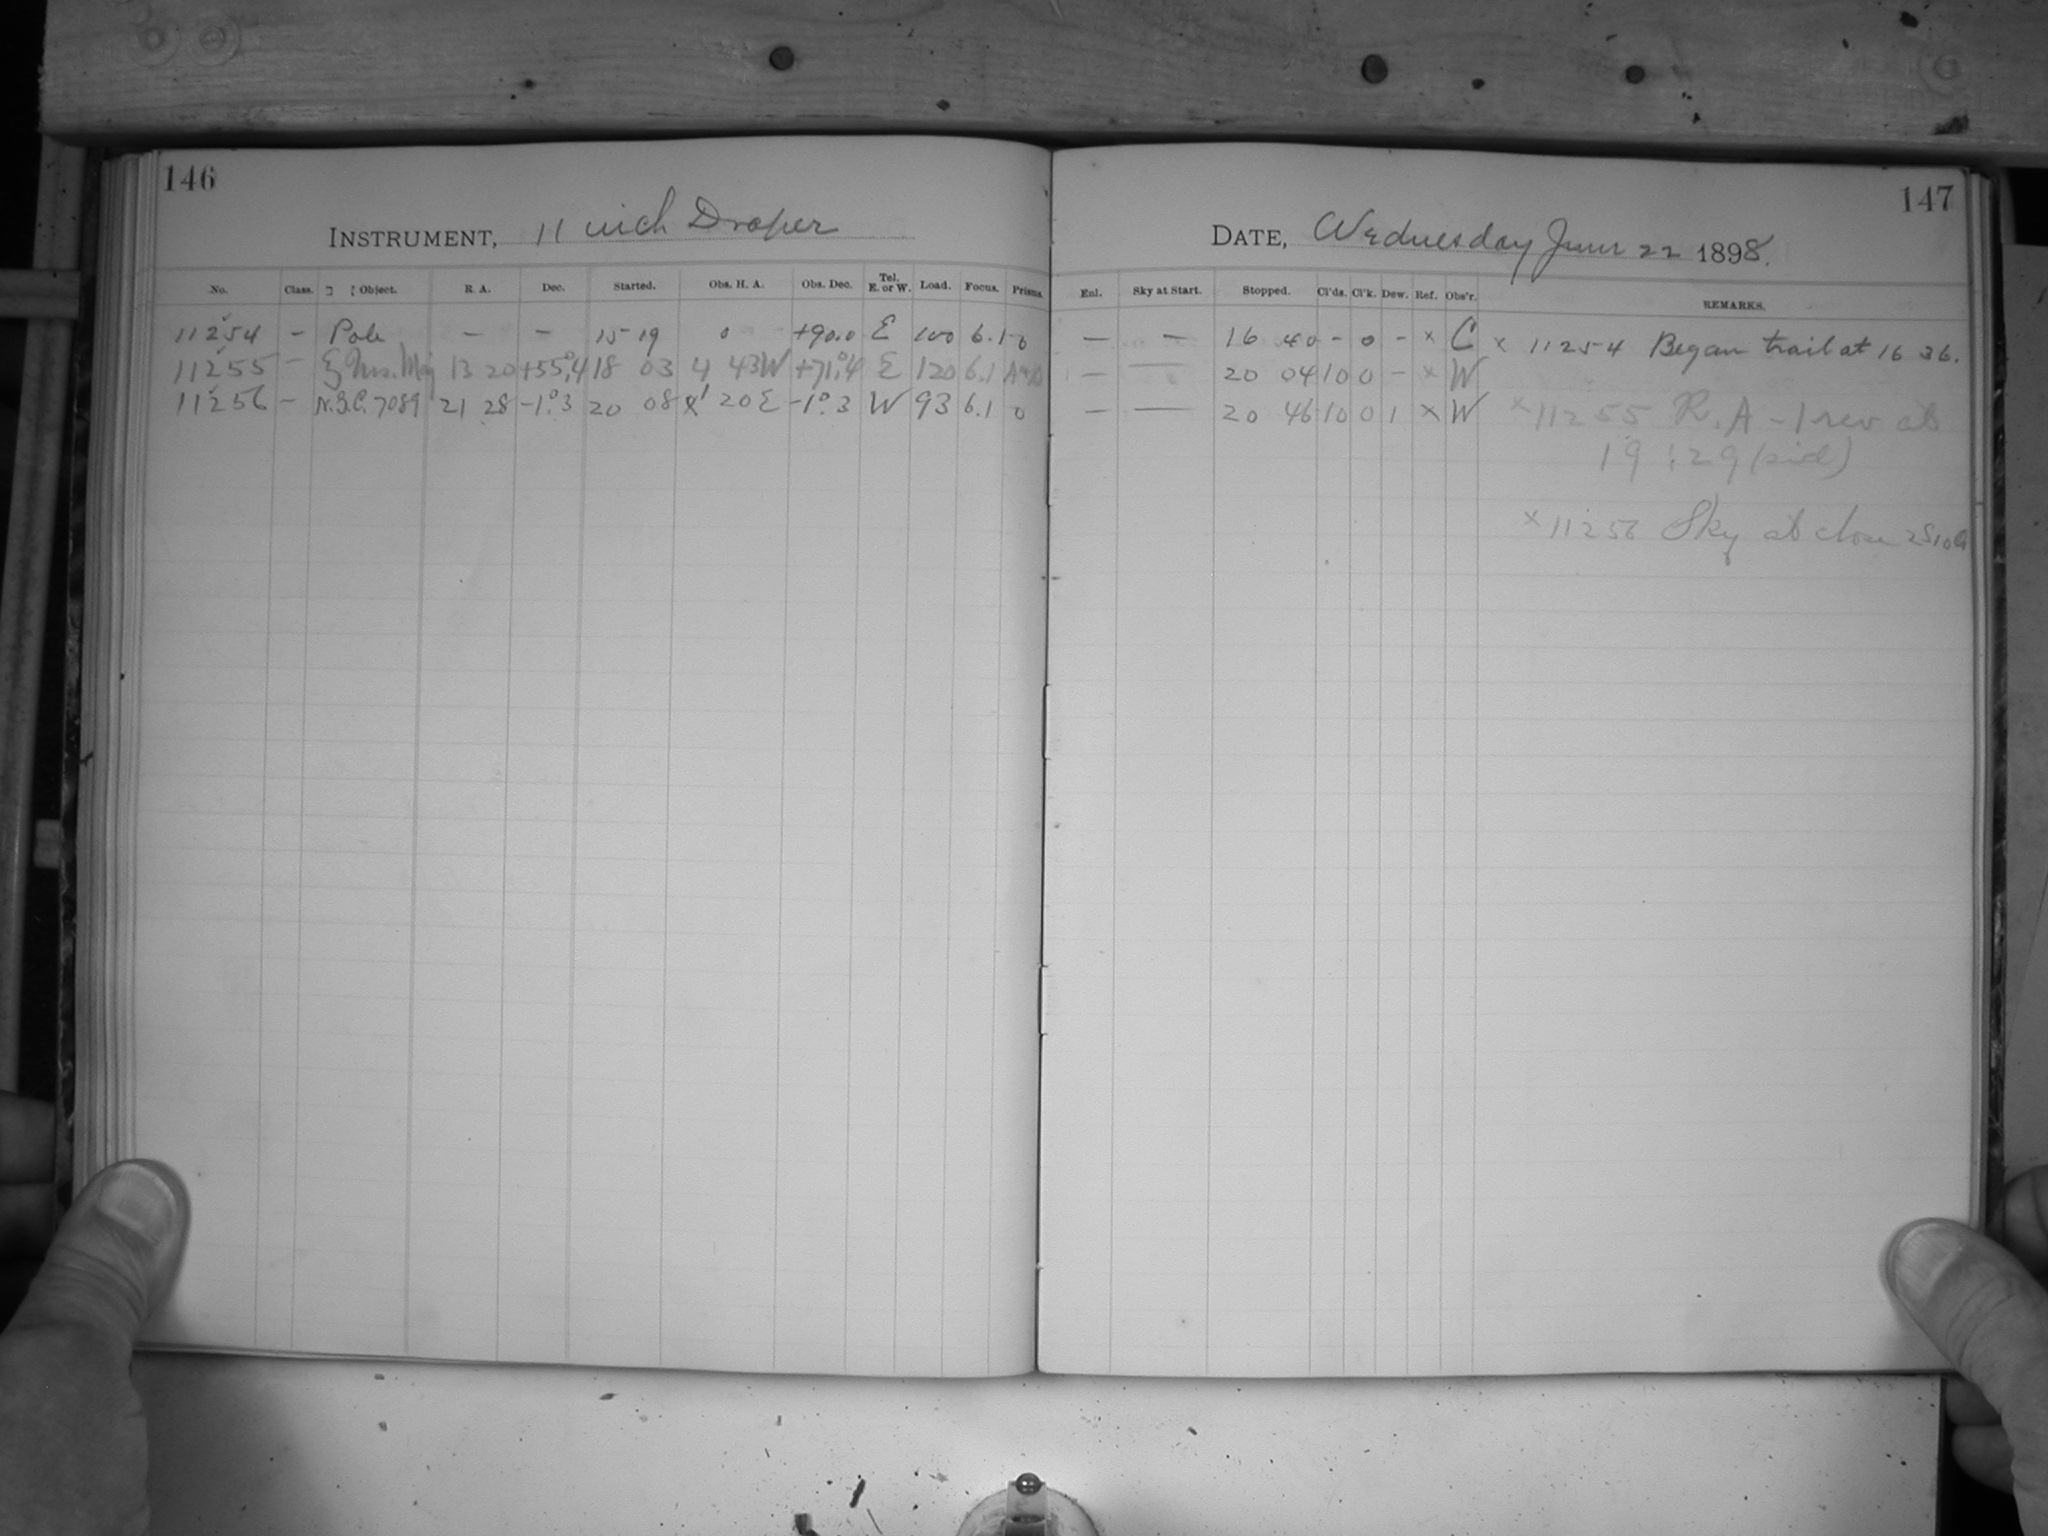 146
INSTRUMENT, 11 inch Draper
No. Class. Object. R. A. Dec. Started. Obs. H. A. Obs. Dec. Tel. E. or W. Load. Focus. Prisms.
11254 – Pole – – 15 19 0 +90.0 E 100 6.1 0
11255 – ξ Urs. Maj 13 20 +55°.4 18 03 4 43W +71°.4 E 120 6.1
11256 – N.G.C. 7089 21 28 –1°.3 20 08 1 20 E –1°.3 W 93 6.1 0
147
DATE, Wednesday June 22 1898.
Enl. Sky at Start. Stopped. Cl'ds. Cl'k. Dew. Ref. Obs'r. REMARKS.
– – 16 40 – 0 – × C × 11254 Began trail at 16 36.
– — 20 04 10 0 – × W
– — 20 46 10 0 1 × W × 11255 R.A – 1 rev at
19:29 (sid)
× 11256 Sky at close